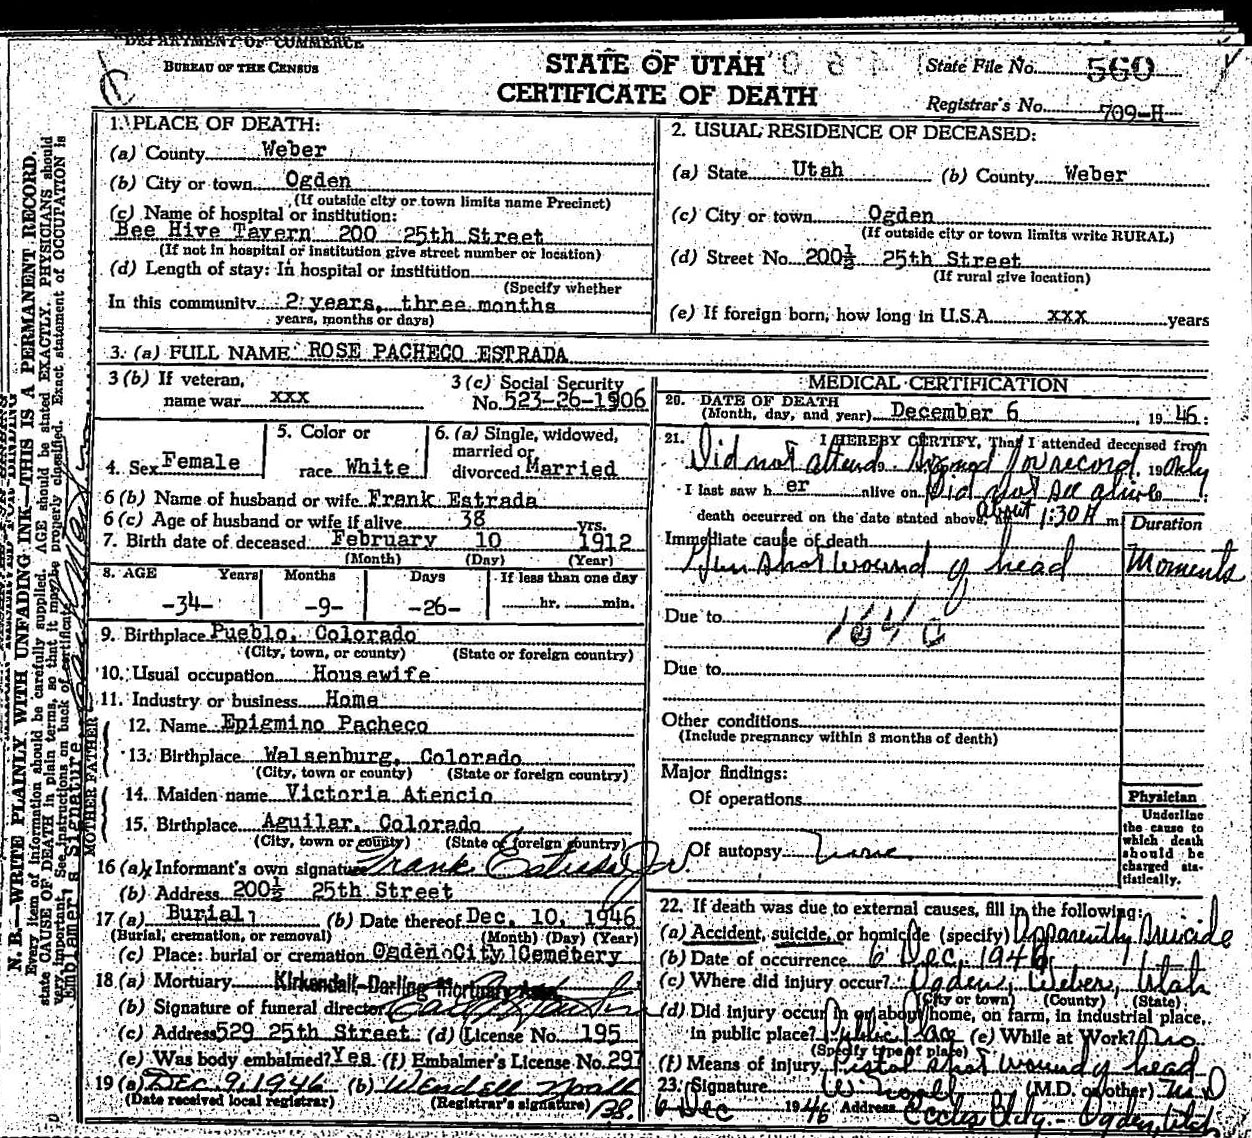 DEPARTMENT OF COMMERCE
BUREAU OF THE CENSUS
STATE OF UTAH
CERTIFICATE OF DEATH
State File No. 560
Registrar's No. 709-H
N. B.—WRITE PLAINLY WITH UNFADING INK—THIS IS A PERMANENT RECORD.
Every item of information should be carefully supplied. AGE should be stated EXACTLY. PHYSICIANS should
state CAUSE OF DEATH in plain terms, so that it may be properly classified. Exact statement of OCCUPATION is
very important. See instructions on back of certificate.
Embalmer's Signature
1. PLACE OF DEATH:
(a) County Weber
(b) City or town Ogden
(If outside city or town limits name Precinct)
(c) Name of hospital or institution:
Bee Hive Tavern 200 25th Street
(If not in hospital or institution give street number or location)
(d) Length of stay: In hospital or institution
(Specify whether
In this community 2 years, three months
years, months or days)
2. USUAL RESIDENCE OF DECEASED:
(a) State Utah (b) County Weber
(c) City or town Ogden
(If outside city or town limits write RURAL)
(d) Street No. 200½ 25th Street
(If rural give location)
(e) If foreign born, how long in U.S.A. xxx years
3. (a) FULL NAME ROSE PACHECO ESTRADA
3 (b) If veteran,
name war xxx
3 (c) Social Security
No. 523-26-1906
4. Sex Female
5. Color or
race White
6. (a) Single, widowed,
married or
divorced Married
6 (b) Name of husband or wife Frank Estrada
6 (c) Age of husband or wife if alive 38 yrs.
7. Birth date of deceased February 10 1912
(Month) (Day) (Year)
8. AGE Years Months Days If less than one day
-34- -9- -26- hr. min.
9. Birthplace Pueblo, Colorado
(City, town, or county) (State or foreign country)
10. Usual occupation Housewife
11. Industry or business Home
FATHER
12. Name Epigmino Pacheco
13. Birthplace Walsenburg, Colorado
(City, town or county) (State or foreign country)
MOTHER
14. Maiden name Victoria Atencio
15. Birthplace Aguilar, Colorado
(City, town or county) (State or foreign country)
16 (a) Informant's own signature Frank Estrada Jr.
(b) Address 200½ 25th Street
17 (a) Burial (b) Date thereof Dec. 10, 1946
(Burial, cremation, or removal) (Month) (Day) (Year)
(c) Place: burial or cremation Ogden City Cemetery
18 (a) Mortuary Kirkendall-Darling Mortuary
(b) Signature of funeral director
(c) Address 529 25th Street (d) License No. 195
(e) Was body embalmed? Yes (f) Embalmer's License No. 297
19 (a) DEC 9, 1946 (b) Wendell Noall
(Date received local registrar) (Registrar's signature) /38
MEDICAL CERTIFICATION
20. DATE OF DEATH
(Month, day, and year) December 6 1946
21. I HEREBY CERTIFY, That I attended deceased from
Did not attend. Signed for record 19 only
I last saw her alive on Did not see alive
death occurred on the date stated above, at about 1:30 A m.
Duration
Immediate cause of death
Gun shot wound of head Moments
Due to 164 c
Due to
Other conditions
(Include pregnancy within 3 months of death)
Major findings:
Of operations
Of autopsy None
Physician
Underline
the cause to
which death
should be
charged sta-
tistically.
22. If death was due to external causes, fill in the following:
(a) Accident, suicide, or homicide (specify) Apparently Suicide
(b) Date of occurrence 6 Dec. 1946
(c) Where did injury occur? Ogden, Weber, Utah
(City or town) (County) (State)
(d) Did injury occur in or about home, on farm, in industrial place,
in public place? Public Place (e) While at Work? No
(Specify type of place)
(f) Means of injury Pistol shot wound of head
23. Signature (M.D. or other) M D
6 Dec 1946 Address Eccles Bldg. - Ogden, Utah